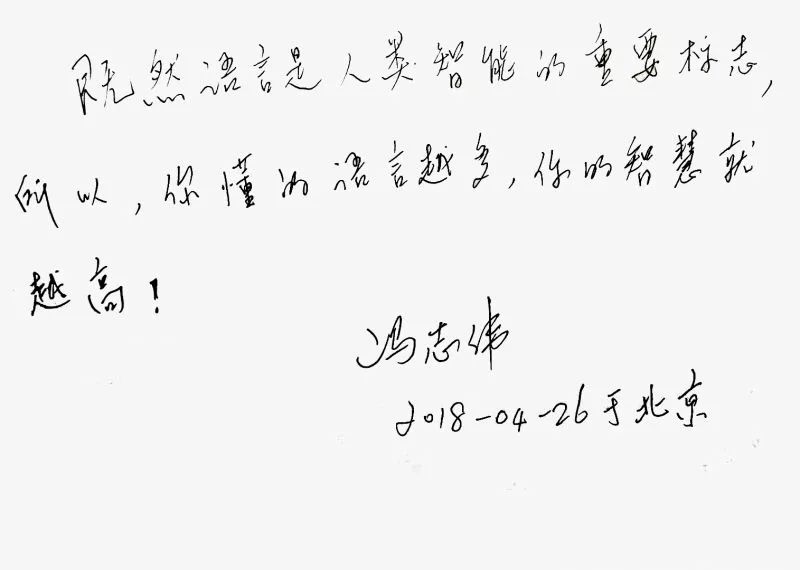 既然语言是人类智能的重要标志,
所以,你懂的语言越多,你的智慧就
越高!
冯志伟
2018-04-26于北京